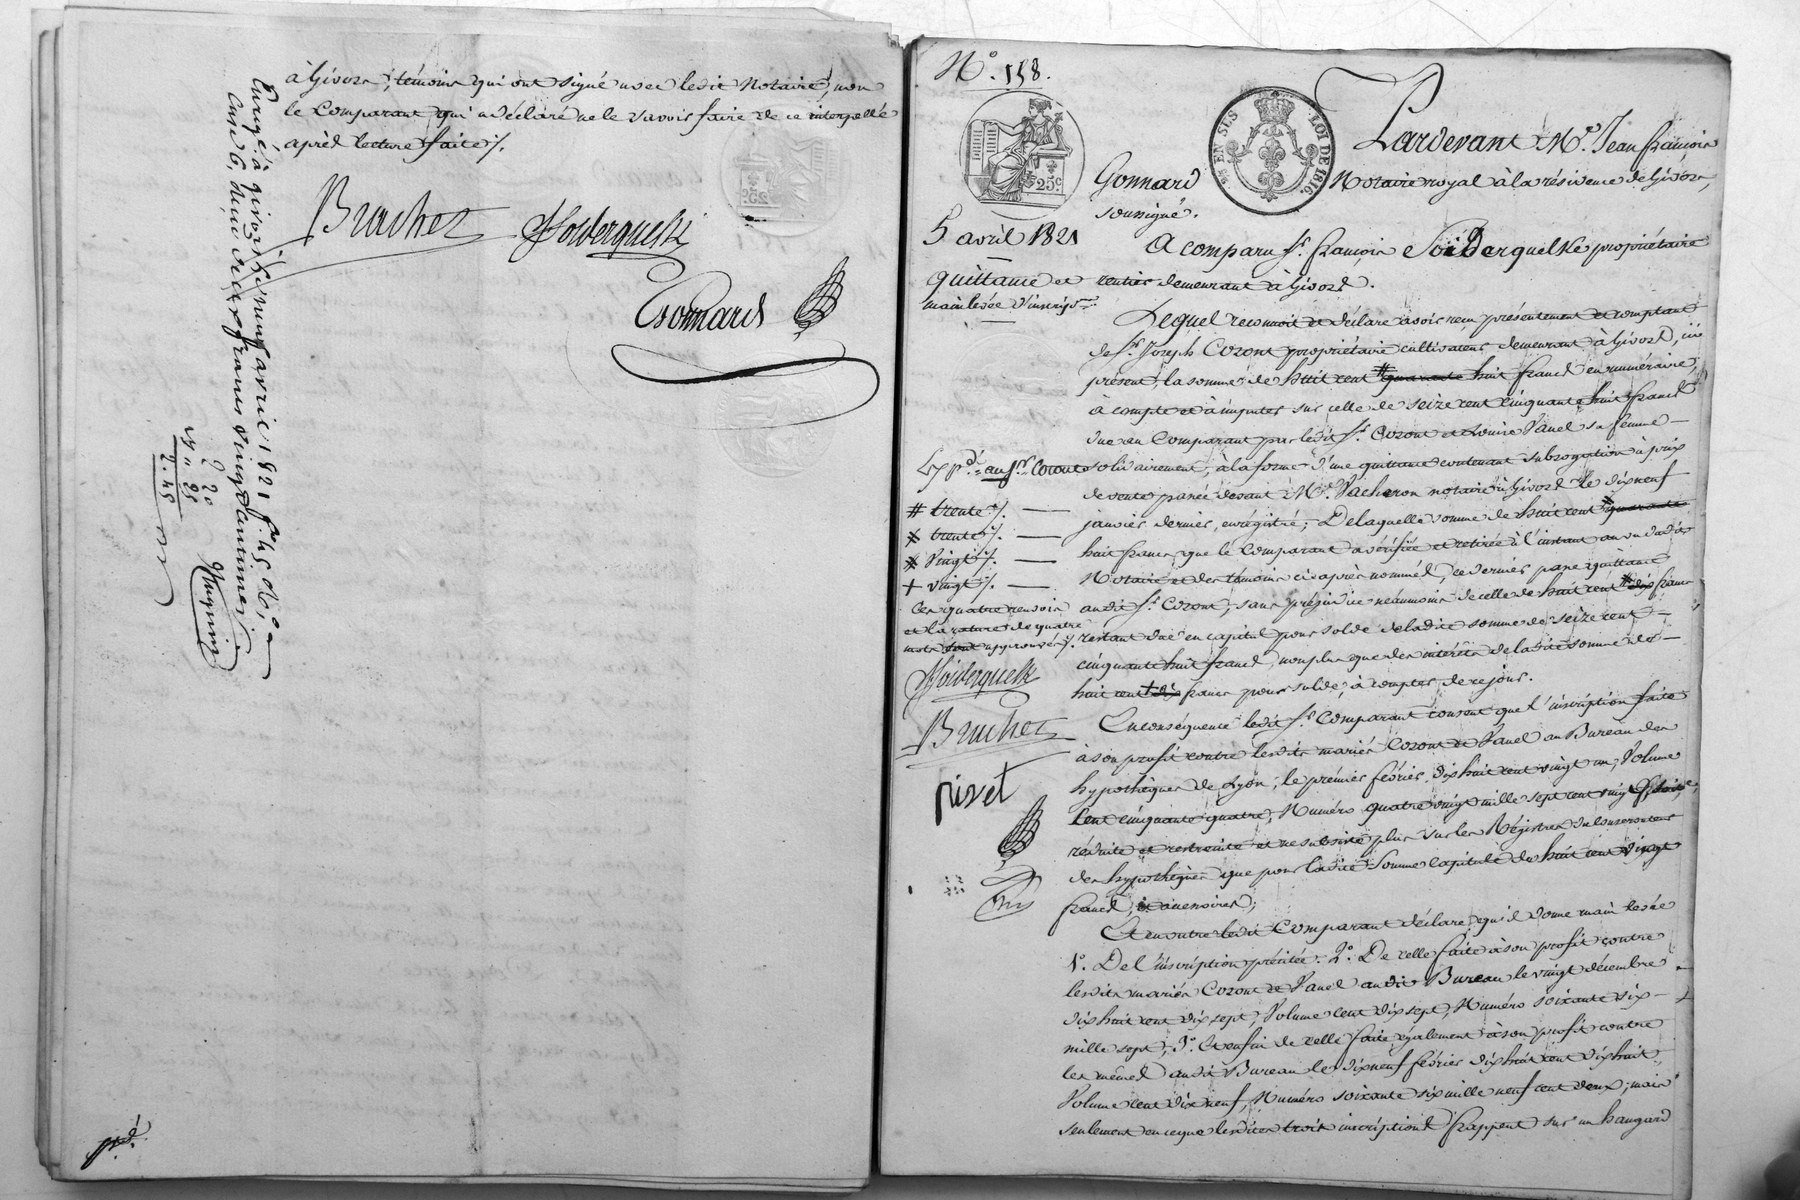 à Givors, témoins qui ont signé avec ledit Notaire, non
le Comparant qui a déclaré ne le savoir faire de ce interpellé
après lecture faite /.
Brachet
Soiderquelk
Gonnard
Enrgé à Givors le neuf avril 1821 f.° 45 R.°
Case 6, reçu deux francs vingt centimes
2 20
" 25
2.45
N.° 158.
EN SUS
LOI DE 1816.
25c
Pardevant M.e Jean françois
Gonnard
Notaire royal à la résidence de Givors,
soussigné.
5 avril 1821
A comparu S.r françois Soiderquelke propriétaire
quittance et
rentier demeurant à Givors.
main levée d'inscripon
Lequel reconnoit et déclare avoir reçu présentement et comptant
de S.r Joseph Coront propriétaire cultivateur demeurant à Givors, ici
présent, la somme de huit cent # quarante huit francs en numéraire,
à compte et à imputer sur celle de seize cent cinquante huit francs
due au Comparant par ledit S.r Coront et Louise Panel sa femme
Exp.d au S.r Coront
solidairement, à la forme d'une quittance contenant subrogation à prix
de vente passée devant M.e Vacheron notaire à Givors le dixneuf
# trente /.
janvier dernier, enregistré; De laquelle somme de huit cent quarante
* trente /.
huit francs que le Comparant a vérifiée et retirée à l'instant au vu dudit
* vingt /.
Notaire et des témoins ci après nommés, ce dernier passe quittance
+ vingt /.
audit S.r Coront, sans préjudice néanmoins de celle de huit cent dix francs
Ces quatre renvois
et la rature de quatre
restant due en capital pour solde de ladite somme de seize cent
mots sont approuvés /.
cinquante huit francs, non plus que des intérêts de ladite somme de
Soiderquelk
huit cent + dix francs pour solde, à compter de ce jour.
Brachet
En conséquence ledit S.r Comparant consent que l'inscription faite
à son profit contre lesdits mariés Coront et Panel au Bureau des
hypothèques de Lyon, le premier février dix huit cent vingt un, Volume
pivet
Cent cinquante quatre, Numéro quatre vingt mille sept cent vingt
réduite et restreinte et ne subsiste plus sur les Régistres du Conservateur
des hypothèques que pour ladite somme capitale de huit cent vingt
francs, et accessoires;
Et en outre ledit Comparant déclare qu'il donne main levée
1.° De l'inscription précitée. 2.° De celle faite à son profit contre
lesdits mariés Coront et Panel audit Bureau le vingt décembre
dix huit cent dix sept, Volume cent dix sept, Numéro soixante dix
mille sept; 3.° Et enfin de celle faite également à son profit contre
les mêmes audit Bureau le dixneuf février dix huit cent dix huit
Volume cent dix neuf, Numéro soixante dix mille neuf cent deux; mais
seulement en ce que lesdites trois inscriptions frappent sur un hangard